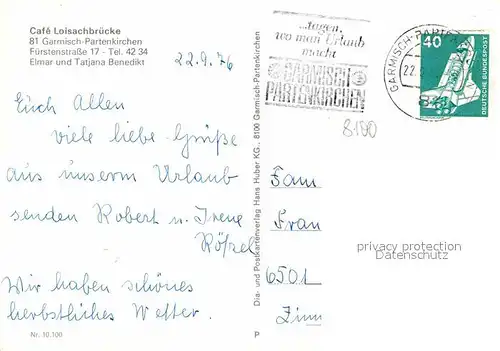 Café Loisachbrücke
81 Garmisch-Partenkirchen
Fürstenstraße 17 - Tel. 42 34
Elmar und Tatjana Benedikt
22.9.76
Euch Allen
viele liebe Grüße
aus unserm Urlaub
senden Robert u. Irene
Wir haben schönes
herbstliches Wetter.
Nr. 10.100
Dia- und Postkartenverlag Hans Huber KG., 8100 Garmisch-Partenkirchen
P
...tagen,
wo man Urlaub
macht
GARMISCH
PARTENKIRCHEN
GARMISCH-PARTE
22.
40
DEUTSCHE BUNDESPOST
8100
Fam
6501
privacy protection
Datenschutz